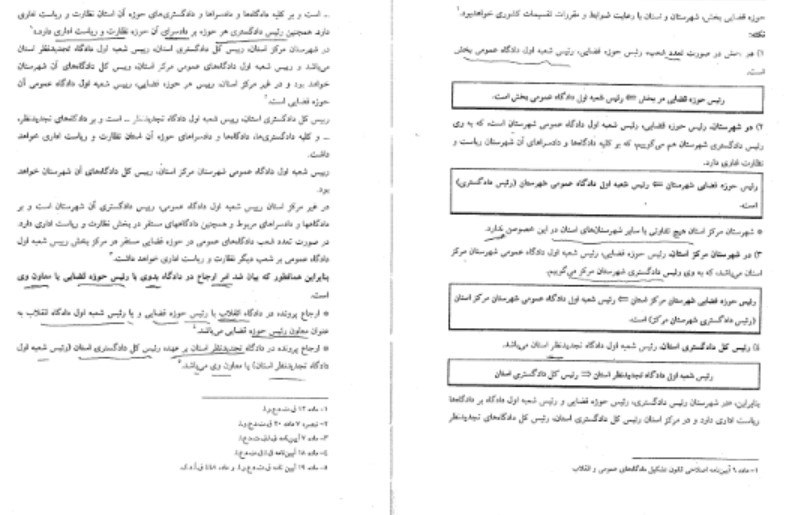 حوزه قضایی بخش، شهرستان و استان با رعایت ضوابط و مقررات تقسیمات کشوری خواهدبود.۱
نکته:
۱) هر بخش در صورت تعدد شعب، رئیس حوزه قضایی، رئیس شعبه اول دادگاه عمومی بخش
است.
رئیس حوزه قضایی هر بخش ⇐ رئیس شعبه اول دادگاه عمومی بخش است.
۲) در شهرستان، رئیس حوزه قضایی، رئیس شعبه اول دادگاه عمومی شهرستان است، که به وی
رئیس دادگستری شهرستان هم می‌گوییم، که بر کلیه دادگاه‌ها و دادسراهای آن شهرستان ریاست و
نظارت اداری دارد.
رئیس حوزه قضایی شهرستان ⇐ رئیس شعبه اول دادگاه عمومی شهرستان (رئیس دادگستری)
است.
* شهرستان مرکز استان هیچ تفاوتی با سایر شهرستان‌های استان در این خصوص ندارد.
۳) در شهرستان مرکز استان، رئیس حوزه قضایی، رئیس شعبه اول دادگاه عمومی شهرستان مرکز
استان می‌باشد، که به وی رئیس دادگستری شهرستان مرکز می‌گوییم.
رئیس حوزه قضایی شهرستان مرکز استان ⇐ رئیس شعبه اول دادگاه عمومی شهرستان مرکز استان
(رئیس دادگستری شهرستان مرکز) است.
٤) رئیس کل دادگستری استان، رئیس شعبه اول دادگاه تجدیدنظر استان می‌باشد.
رئیس شعبه اول دادگاه تجدیدنظر استان ⇐ رئیس کل دادگستری استان
بنابراین، «در شهرستان رئیس دادگستری، رئیس حوزه قضایی و رئیس شعبه اول دادگاه بر دادگاه‌ها
ریاست اداری دارد و در مرکز استان رئیس کل دادگستری استان، رئیس کل دادگاه‌های تجدیدنظر
۱- ماده ۹ آیین‌نامه اصلاحی قانون تشکیل دادگاه‌های عمومی و انقلاب
... است و بر کلیه دادگاه‌ها و دادسراها و دادگستری‌های حوزه آن استان نظارت و ریاست اداری
دارد. همچنین رئیس دادگستری هر حوزه بر دادسرای آن حوزه نظارت و ریاست اداری دارد.»
در شهرستان مرکز استان، رییس کل دادگستری استان، رییس شعبه اول دادگاه تجدیدنظر استان
می‌باشد و رییس شعبه اول دادگاه‌های عمومی مرکز استان، رییس کل دادگاه‌های آن شهرستان
خواهد بود و در غیر مرکز استان، رییس هر حوزه قضایی، رییس شعبه اول دادگاه عمومی آن
حوزه قضایی است.
رییس کل دادگستری استان، رییس شعبه اول دادگاه تجدیدنظر ... است و بر دادگاه‌های تجدیدنظر،
... و کلیه دادگستری‌ها، دادگاه‌ها و دادسراهای حوزه آن استان نظارت و ریاست اداری خواهد
داشت.
رییس شعبه اول دادگاه عمومی شهرستان مرکز استان، رییس کل دادگاه‌های آن شهرستان خواهد
بود.
در غیر مرکز استان رییس شعبه اول دادگاه عمومی، رییس دادگستری آن شهرستان است و بر
دادگاهها و دادسراهای مربوط و همچنین دادگاههای مستقر در بخش نظارت و ریاست اداری دارد.
در صورت تعدد شعب دادگاه‌های عمومی در حوزه قضایی مستقر در مرکز بخش رییس شعبه اول
دادگاه عمومی بر شعب دیگر نظارت و ریاست اداری خواهد داشت.
بنابراین همانطور که بیان شد امر ارجاع در دادگاه بدوی با رئیس حوزه قضایی یا معاون وی
است.
* ارجاع پرونده در دادگاه انقلاب با رئیس حوزه قضایی و یا رئیس شعبه اول دادگاه انقلاب به
عنوان معاون رئیس حوزه قضایی می‌باشد.
* ارجاع پرونده در دادگاه تجدیدنظر استان بر عهده رئیس کل دادگستری استان (رئیس شعبه اول
دادگاه تجدیدنظر استان) یا معاون وی می‌باشد.
۱- ماده ۱۲ ق.ت.د.ع.و.ا.
۲- تبصره ۷ ماده ۲۰ ق.ت.د.ع.و.ا.
۳- ماده ۷ آیین‌نامه ق.ا.ق.ت.د.ع.
٤- ماده ۱۸ آیین‌نامه ق.ا.ق.ت.د.ع.
۵- ماده ۱۹ آیین نامه ق.ت.د.ع.و.ا. و ماده ٤٤۸ ق.آ.د.ک.